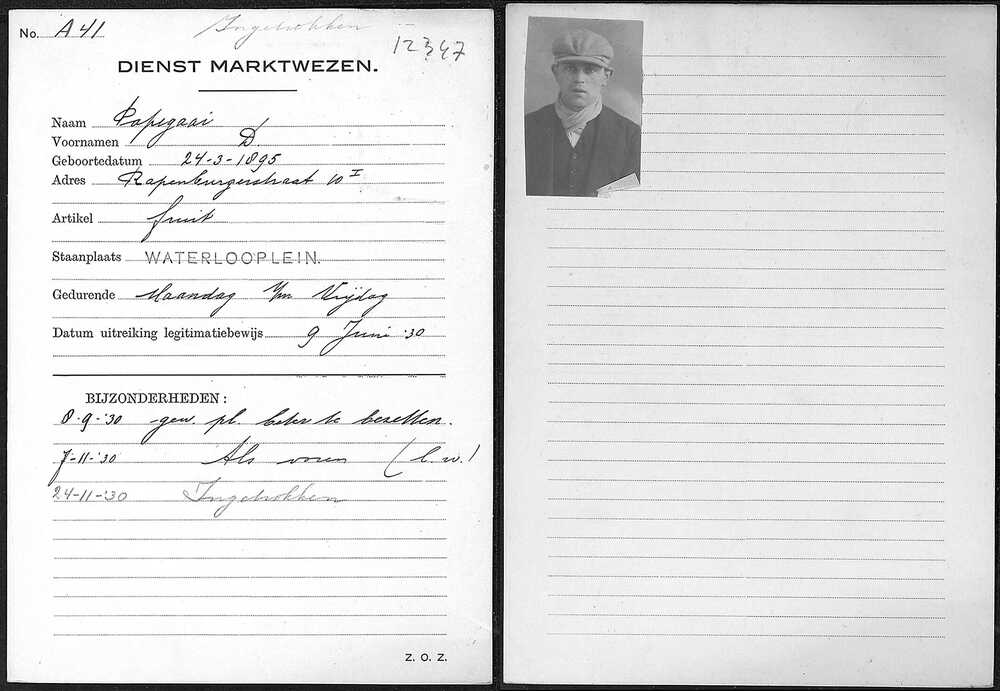 No. A 41
Ingetrokken
12347
DIENST MARKTWEZEN.
Naam Papegaai
Voornamen D.
Geboortedatum 24-3-1895
Adres Rapenburgerstraat 10 I
Artikel fruit
Staanplaats WATERLOOPLEIN.
Gedurende Maandag t/m Vrijdag
Datum uitreiking legitimatiebewijs 9 Juni '30
BIJZONDERHEDEN:
8-9-'30 gew. pl. beter te bezetten.
7-11-'30 Als voren (l.w.)
24-11-'30 Ingetrokken
Z. O. Z.